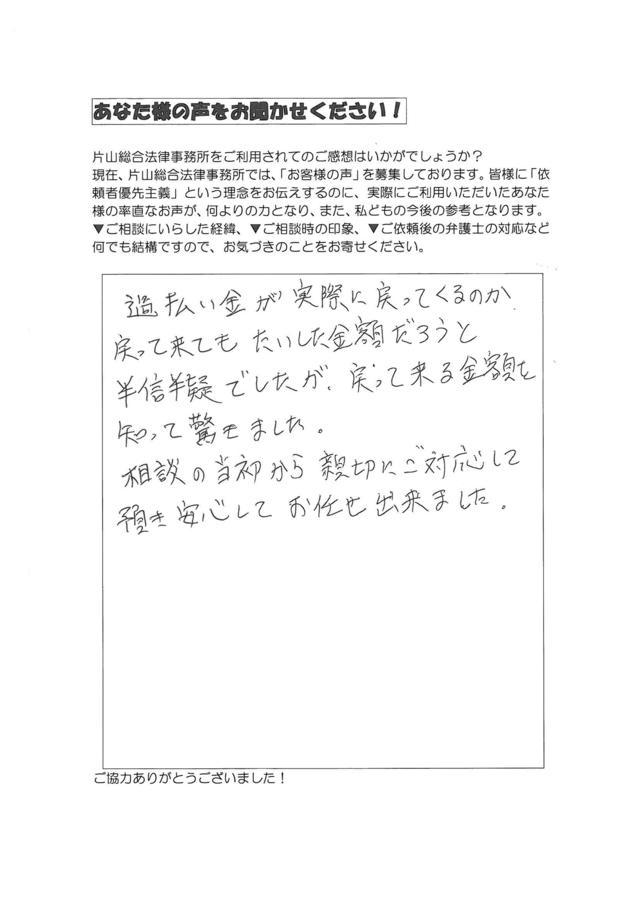 あなた様の声をお聞かせください！
片山総合法律事務所をご利用されてのご感想はいかがでしょうか？
現在、片山総合法律事務所では、「お客様の声」を募集しております。皆様に「依
頼者優先主義」という理念をお伝えするのに、実際にご利用いただいたあなた
様の率直なお声が、何よりの力となり、また、私どもの今後の参考となります。
▼ご相談にいらした経緯、▼ご相談時の印象、▼ご依頼後の弁護士の対応など
何でも結構ですので、お気づきのことをお寄せください。
過払い金が実際に戻ってくるのか
戻って来ても たいした金額だろうと
半信半疑でしたが、戻って来る金額を
知って驚きました。
相談の当初から親切にご対応して
頂き安心してお任せ出来ました。
ご協力ありがとうございました！